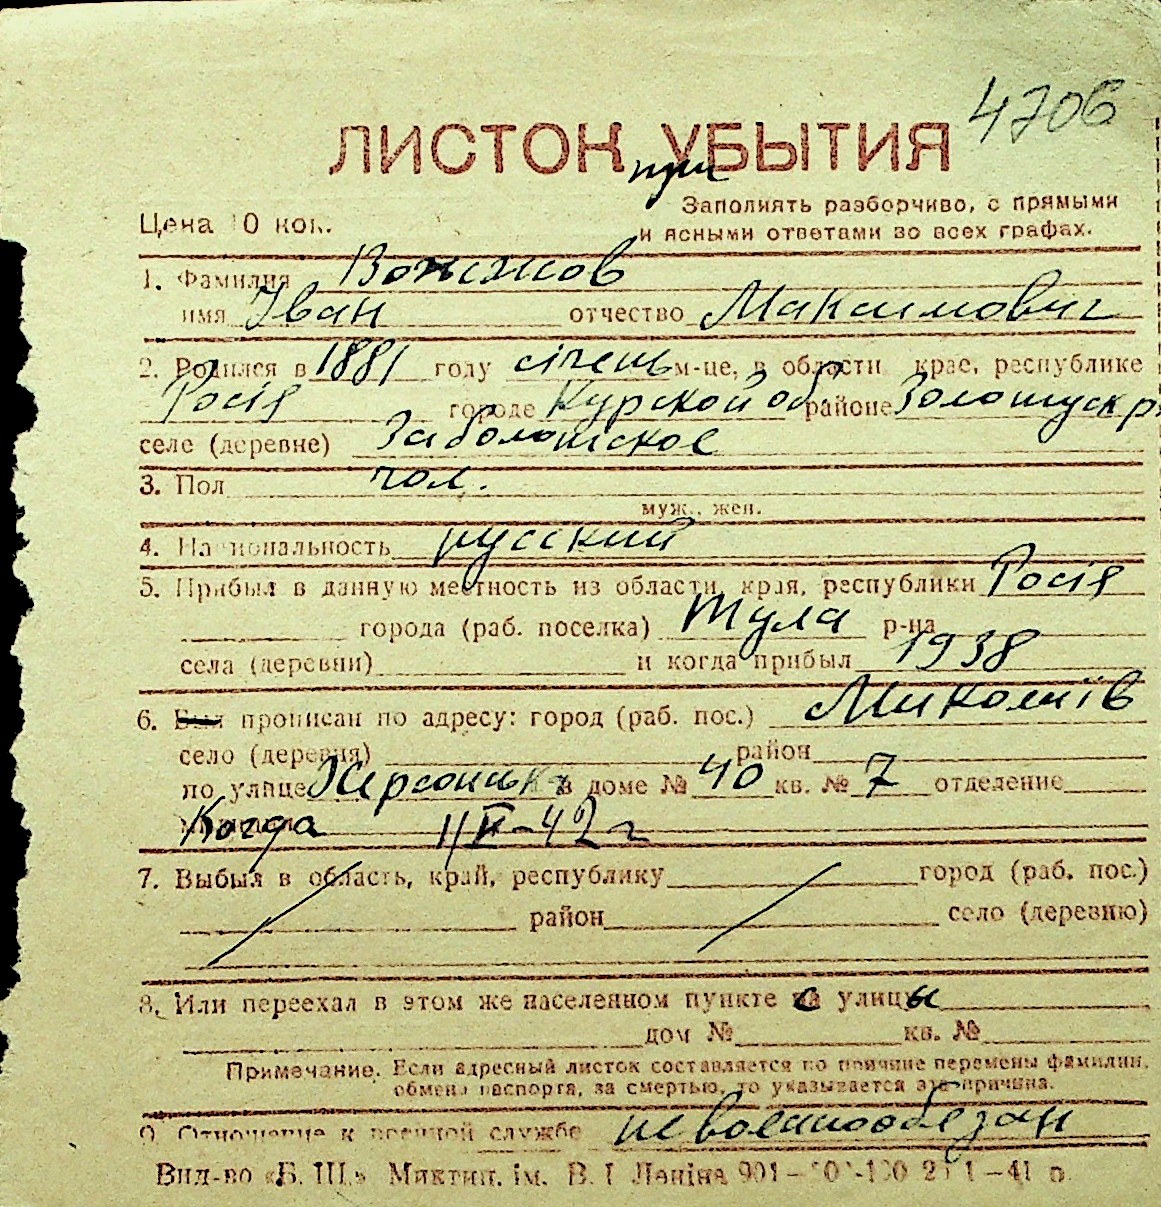 4706
ЛИСТОК УБЫТИЯ
при
Заполнять разборчиво, с прямыми
Цена 10 коп.
и ясными ответами во всех графах.
1. Фамилия Вожжов
имя Іван отчество Максимович
2. Родился в 1881 году січень м-це, в области крае, республике
Росія городе Курской об. районе Золотуск р
селе (деревне) Заболотское
3. Пол чол.
муж., жен.
4. Национальность русский
5. Прибыл в данную местность из области, края, республики Росія
города (раб. поселка) Тула р-на
села (деревни) и когда прибыл 1938
6. Был прописан по адресу: город (раб. пос.) Миколаїв
село (деревня) район
по улице Херсонська в доме № 40 кв. № 7 отделение
Когда 11/II-42 г
7. Выбыл в область, край, республику город (раб. пос.)
район село (деревню)
8. Или переехал в этом же населенном пункте с улицы
дом № кв. №
Примечание. Если адресный листок составляется по причине перемены фамилии,
обмена паспорта, за смертью, то указывается эта причина.
9. Отношение к военной службе не военнообязан
Вид-во «Б. Ш.» Миктип. ім. В. І. Леніна 901 –41 р.